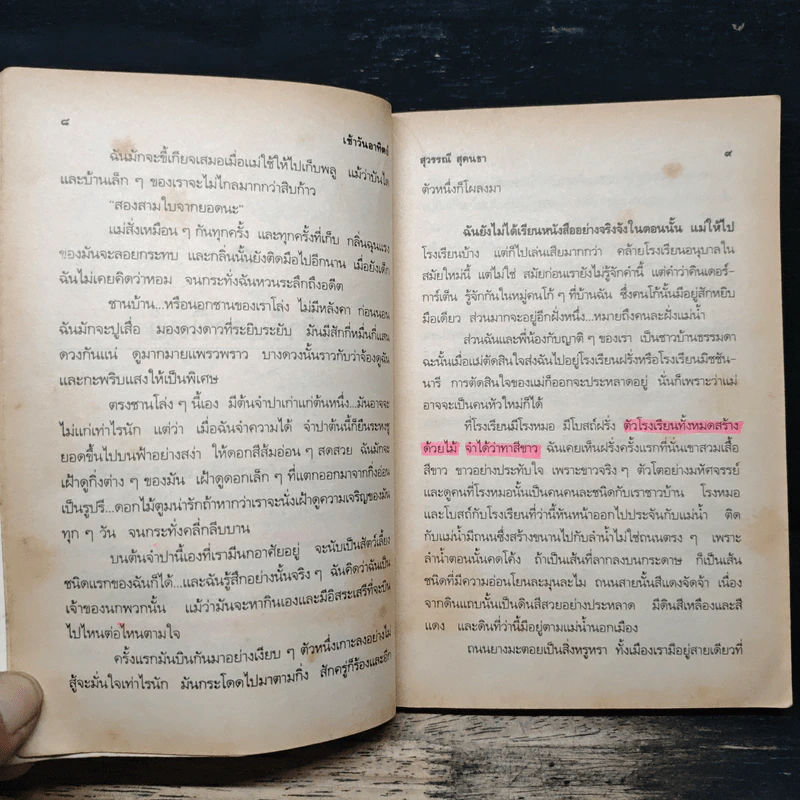 ๘
เช้าวันอาทิตย์
ฉันมักจะขี้เกียจเสมอเมื่อแม่ใช้ให้ไปเก็บพลู แม้ว่าบันได
และบ้านเล็ก ๆ ของเราจะไม่ไกลมากกว่าสิบก้าว
"สองสามใบจากยอดนะ"
แม่สั่งเหมือน ๆ กันทุกครั้ง และทุกครั้งที่เก็บ กลิ่นฉุนแรง
ของมันจะลอยกระทบ และกลิ่นนั้นยังติดมือไปอีกนาน เมื่อยังเด็ก
ฉันไม่เคยคิดว่าหอม จนกระทั่งฉันหวนระลึกถึงอดีต
ชานบ้าน...หรือนอกชานของเราโล่ง ไม่มีหลังคา ก่อนนอน
ฉันมักจะปูเสื่อ มองดวงดาวที่ระยิบระยับ มันมีสักกี่หมื่นกี่แสน
ดวงกันแน่ ดูมากมายแพรวพราว บางดวงนั้นราวกับว่าจ้องดูฉัน
และกะพริบแสงให้เป็นพิเศษ
ตรงชานโล่ง ๆ นี้เอง มีต้นจำปาเก่าแก่ต้นหนึ่ง...มันอาจจะ
ไม่แก่เท่าไรนัก แต่ว่า เมื่อฉันจำความได้ จำปาต้นนี้ก็ยืนระหง
ยอดขึ้นไปบนฟ้าอย่างสง่า ให้ดอกสีส้มอ่อน ๆ สดสวย ฉันมักจะ
เฝ้าดูกิ่งต่าง ๆ ของมัน เฝ้าดูดอกเล็ก ๆ ที่แตกออกมาจากกิ่งอ่อน
เป็นรูปรี...ดอกไม้ตูมน่ารักถ้าหากว่าเราจะนั่งเฝ้าดูความเจริญของมัน
ทุก ๆ วัน จนกระทั่งคลี่กลีบบาน
บนต้นจำปานี้เองที่เรามีนกอาศัยอยู่ จะนับเป็นสัตว์เลี้ยง
ชนิดแรกของฉันก็ได้...และฉันรู้สึกอย่างนั้นจริง ๆ ฉันคิดว่าฉันเป็น
เจ้าของนกพวกนั้น แม้ว่ามันจะหากินเองและมีอิสระเสรีที่จะบิน
ไปไหนต่อไหนตามใจ
ครั้งแรกมันบินกันมาอย่างเงียบ ๆ ตัวหนึ่งเกาะลงอย่างไม่
สู้จะมั่นใจเท่าไรนัก มันกระโดดไปมาตามกิ่ง สักครู่ก็ร้องและอีก
สุวรรณี สุคนธา
๙
ตัวหนึ่งก็โผลงมา
ฉันยังไม่ได้เรียนหนังสืออย่างจริงจังในตอนนั้น แม่ให้ไป
โรงเรียนบ้าง แต่ก็ไปเล่นเสียมากกว่า คล้ายโรงเรียนอนุบาลใน
สมัยใหม่นี้ แต่ไม่ใช่ สมัยก่อนเรายังไม่รู้จักคำนี้ แต่คำว่าคินเดอร์-
การ์เต็น รู้จักกันในหมู่คนโก้ ๆ ที่บ้านฉัน ซึ่งคนโก้นั้นมีอยู่สักหยิบ
มือเดียว ส่วนมากจะอยู่อีกฝั่งหนึ่ง...หมายถึงคนละฝั่งแม่น้ำ
ส่วนฉันและพี่น้องกับญาติ ๆ ของเรา เป็นชาวบ้านธรรมดา
ฉะนั้นเมื่อแม่ตัดสินใจส่งฉันไปอยู่โรงเรียนฝรั่งหรือโรงเรียนมิชชัน-
นารี การตัดสินใจของแม่ก็ออกจะประหลาดอยู่ นั่นก็เพราะว่าแม่
อาจจะเป็นคนหัวใหม่ก็ได้
ที่โรงเรียนมีโรงหมอ มีโบสถ์ฝรั่ง ตัวโรงเรียนทั้งหมดสร้าง
ด้วยไม้ จำได้ว่าทาสีขาว ฉันเคยเห็นฝรั่งครั้งแรกที่นั่นเขาสวมเสื้อ
สีขาว ขาวอย่างประทับใจ เพราะขาวจริง ๆ ตัวโตอย่างมหัศจรรย์
และดูคนที่โรงหมอนั้นเป็นคนคนละชนิดกับเราชาวบ้าน โรงหมอ
และโบสถ์กับโรงเรียนที่ว่านี้หันหน้าออกไปประจันกับแม่น้ำ ติด
กับแม่น้ำมีถนนซึ่งสร้างขนานไปกับลำน้ำไม่ใช่ถนนตรง ๆ เพราะ
ลำน้ำตอนนั้นคดโค้ง ถ้าเป็นเส้นที่ลากลงบนกระดาษ ก็เป็นเส้น
ชนิดที่มีความอ่อนโยนละมุนละไม ถนนสายนั้นสีแดงจัดจ้า เนื่อง
จากดินแถบนั้นเป็นดินสีสวยอย่างประหลาด มีดินสีเหลืองและสี
แดง และดินที่ว่านี้มีอยู่ตามแม่น้ำนอกเมือง
ถนนยางมะตอยเป็นสิ่งหรูหรา ทั้งเมืองเรามีอยู่สายเดียวที่